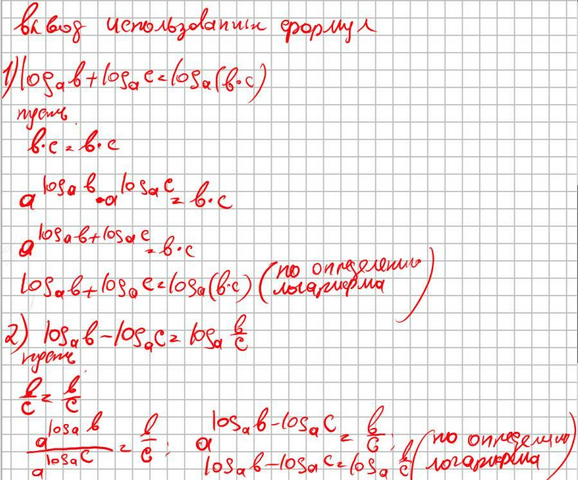 вывод использованных формул
1) logₐb + logₐc = logₐ(b·c)
пусть
b·c = b·c
a^(logₐb) · a^(logₐc) = b·c
a^(logₐb + logₐc) = b·c
logₐb + logₐc = logₐ(b·c) (по определению логарифма)
2) logₐb - logₐc = logₐ b/c
пусть
b/c = b/c
a^(logₐb) / a^(logₐc) = b/c; a^(logₐb - logₐc) = b/c;
logₐb - logₐc = logₐ b/c (по определению логарифма)